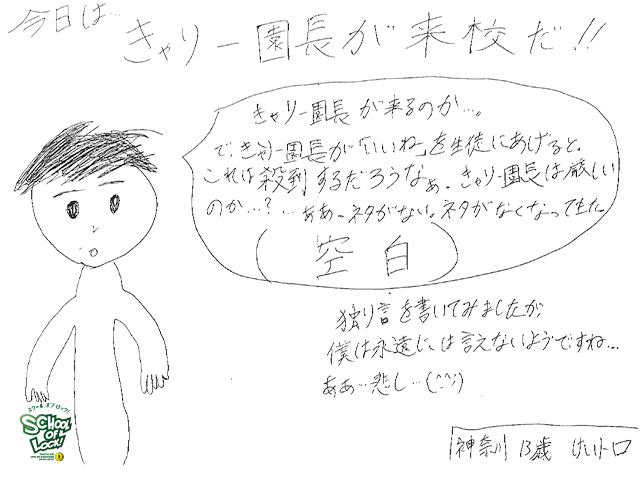 今日は… きゃりー園長が来校だ!!
きゃりー園長が来るのか…。
で、きゃりー園長が「いいね」を生徒にあげると。
これは殺到するだろうなぁ。きゃりー園長は厳しい
のか…?…ああーネタがない。ネタがなくなって生た
(空白)
独り言を書いてみましたが
僕は永遠に、は言えないようですね…
ああ…悲し…(^^;)
スクール オブ ロック!
SCHOOL OF LOCK!
神奈川 13歳 けいトロ